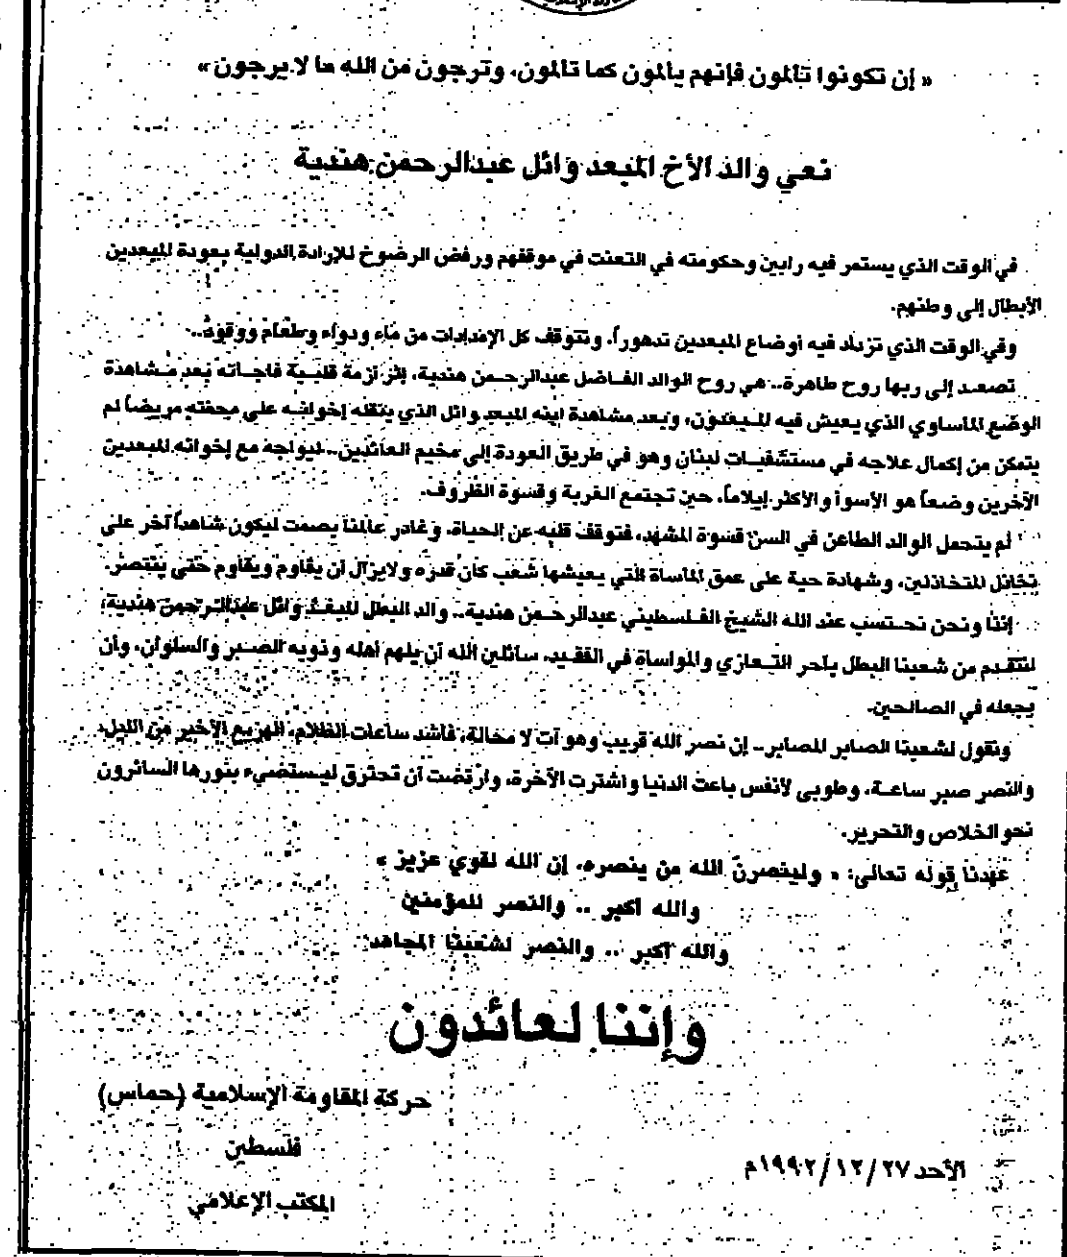 « إن تكونوا تألمون فإنهم يألمون كما تألمون، وترجون من الله ما لا يرجون»
نعي والد الأخ المبعد وائل عبدالرحمن هندية
في الوقت الذي يستمر فيه رابين وحكومته في التعنت في موقفهم ورفض الرضوخ للإرادة الدولية بعودة المبعدين
الأبطال إلى وطنهم.
وفي الوقت الذي تزداد فيه أوضاع المبعدين تدهوراً، وتتوقف كل الإمدادات من ماء ودواء وطعام ووقود..
تصعد إلى ربها روح طاهرة.. هي روح الوالد الفاضل عبدالرحمن هندية، إثر أزمة قلبية فاجأته بعد مشاهدة
الوضع المأساوي الذي يعيش فيه المبعدون، وبعد مشاهدة ابنه المبعد وائل الذي ينقله إخوانه على محفته مريضاً لم
يتمكن من إكمال علاجه في مستشفيات لبنان وهو في طريق العودة إلى مخيم العائدين.. ليواجه مع إخوانه المبعدين
الآخرين وضعاً هو الأسوأ والأكثر إيلاماً، حين تجتمع الغربة وقسوة الظروف.
لم يتحمل الوالد الطاعن في السن قسوة المشهد، فتوقف قلبه عن الحياة، وغادر عالمنا بصمت ليكون شاهداً آخر على
تخاذل المتخاذلين، وشهادة حية على عمق المأساة التي يعيشها شعب كان قدره ولايزال أن يقاوم ويقاوم حتى ينتصر.
إننا ونحن نحتسب عند الله الشيخ الفلسطيني عبدالرحمن هندية.. والد البطل المبعد وائل عبدالرحمن هندية،
لنتقدم من شعبنا البطل بأحر التعازي والمواساة في الفقيد، سائلين الله أن يلهم أهله وذويه الصبر والسلوان، وأن
يجعله في الصالحين.
ونقول لشعبنا الصابر المصابر.. إن نصر الله قريب وهو آت لا محالة، فأشد ساعات الظلام، الهزيع الأخير من الليل،
والنصر صبر ساعة، وطوبى لأنفس باعت الدنيا واشترت الآخرة، وارتضت أن تحترق ليستضيء بنورها السائرون
نحو الخلاص والتحرير.
عهدنا قوله تعالى: « ولينصرنّ الله من ينصره، إن الله لقوي عزيز »
والله أكبر .. والنصر للمؤمنين
والله أكبر .. والنصر لشعبنا المجاهد
وإننا لعائدون
حركة المقاومة الإسلامية (حماس)
فلسطين
الأحد ٢٧/ ١٢/ ١٩٩٢م
المكتب الإعلامي